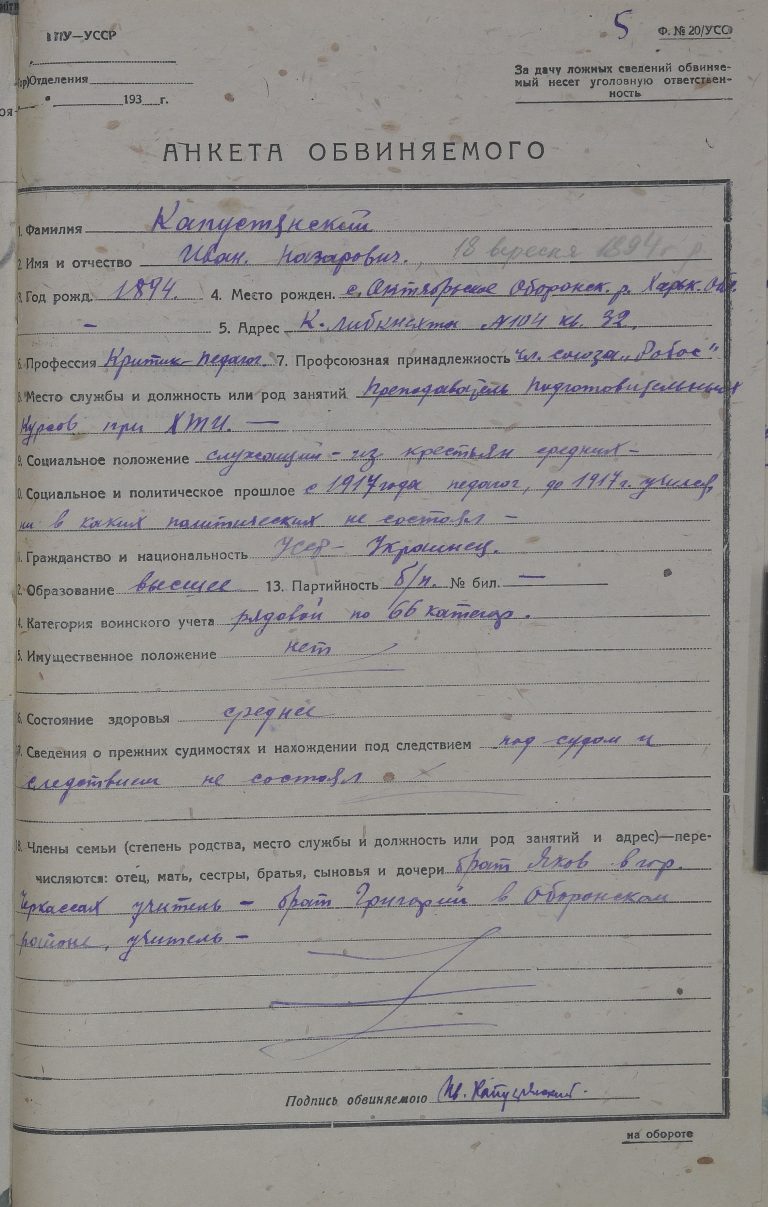 ГПУ—УССР
5
Ф. № 20/УСО
Отделения
193 г.
За дачу ложных сведений обвиняе-
мый несет уголовную ответствен-
ность
АНКЕТА ОБВИНЯЕМОГО
1. Фамилия Капустянский
2. Имя и отчество Иван Назарович. 18 вересня 1894 р.
3. Год рожд. 1894. 4. Место рожден. с. Октябрьское Оборонск. р. Харьк. Обл.
— 5. Адрес К. Либкнехта №104 кв. 32.
6. Профессия Критик-педагог. 7. Профсоюзная принадлежность чл. союза „Робос"
8. Место службы и должность или род занятий преподаватель подготовительных
курсов при ХТИ. —
9. Социальное положение служащий — из крестьян средних —
10. Социальное и политическое прошлое с 1917 года педагог, до 1917 г. учился,
ни в каких политических не состоял —
11. Гражданство и национальность Украинец.
12. Образование высшее 13. Партийность б/п. № бил. —
14. Категория воинского учета рядовой по 66 категор.
15. Имущественное положение нет
16. Состояние здоровья среднее
17. Сведения о прежних судимостях и нахождении под следствием под судом и
следствием не состоял
18. Члены семьи (степень родства, место службы и должность или род занятий и адрес)—пере-
числяются: отец, мать, сестры, братья, сыновья и дочери брат Яков в гор.
Черкассах учитель — брат Григорий в Оборонском
районе, учитель —
Подпись обвиняемого Ив. Капустянский.
на обороте